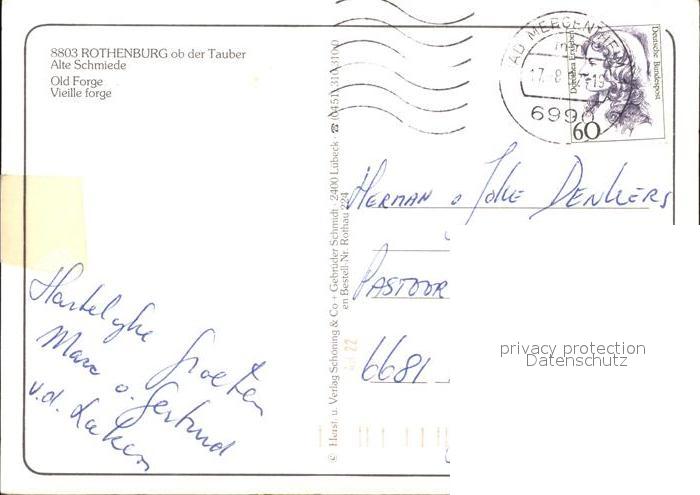 8803 ROTHENBURG ob der Tauber
Alte Schmiede
Old Forge
Vieille forge
BAD MERGENTHEIM
17.-8.
6990
Dorothea Erxleben
Deutsche Bundespost
60
© Herst. u. Verlag Schöning & Co + Gebrüder Schmidt · 2400 Lübeck · ☎ (0451) 310 3100
en Bestell-Nr. Rothau 224
HERMAN o Joke DENKERS
PASTOOR
6681
Hartelijke groeten
Marc o. Gertrud
v.d.
privacy protection
Datenschutz